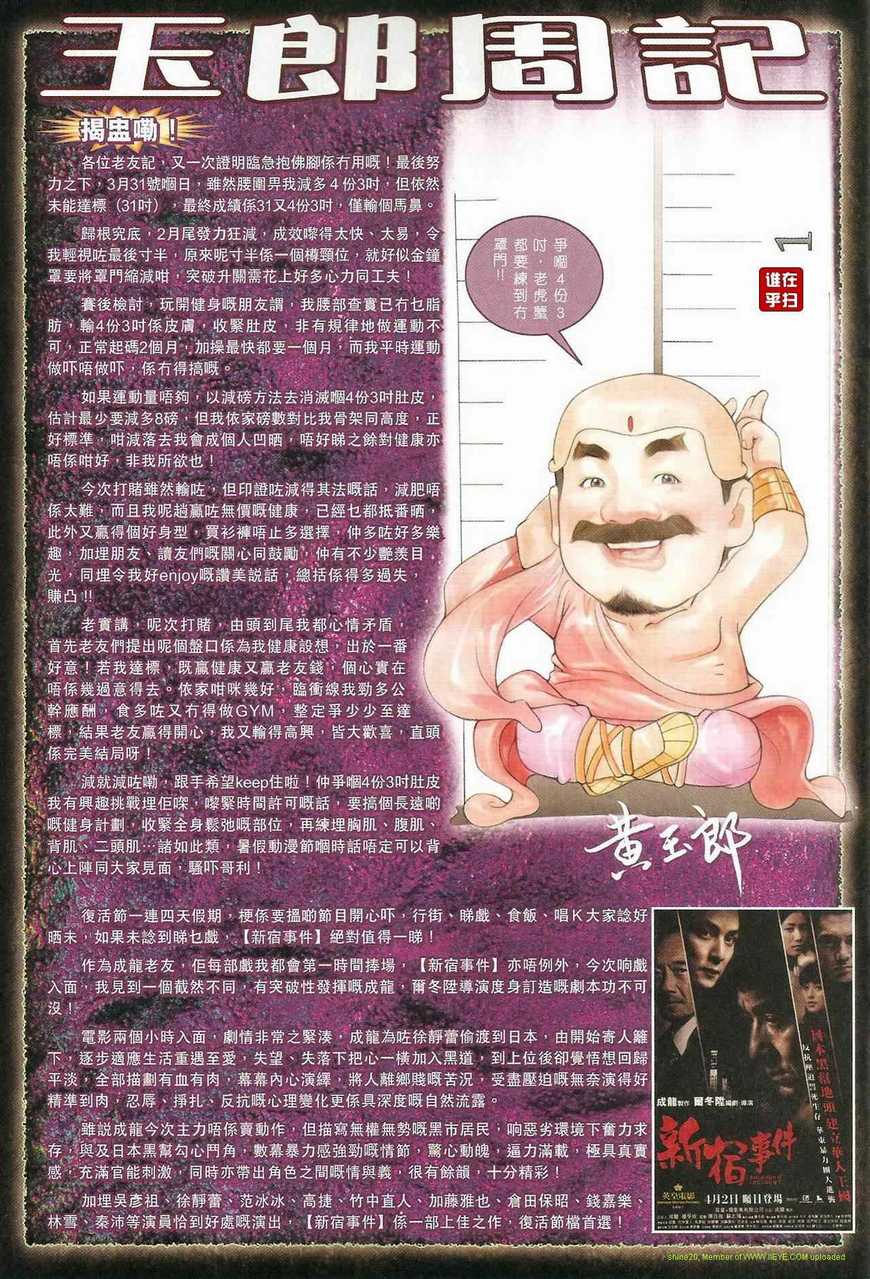 玉郎周記
揭盅嘞！
各位老友記，又一次證明臨急抱佛腳係冇用嘅！最後努
力之下，3月31號嗰日，雖然腰圍畀我減多４份3吋，但依然
未能達標（31吋），最終成績係31又4份3吋，僅輸個馬鼻。
歸根究底，2月尾發力狂減，成效嚟得太快、太易，令
我輕視咗最後寸半，原來呢寸半係一個樽頸位，就好似金鐘
罩要將罩門縮減咁，突破升關需花上好多心力同工夫！
賽後檢討，玩開健身嘅朋友謂，我腰部查實已冇乜脂
肪，輸4份3吋係皮膚，收緊肚皮，非有規律地做運動不
可，正常起碼2個月，加操最快都要一個月，而我平時運動
做吓唔做吓，係冇得搞嘅。
如果運動量唔夠，以減磅方法去消滅嗰4份3吋肚皮，
估計最少要減多8磅，但我依家磅數對比我骨架同高度，正
好標準，咁減落去我會成個人凹晒，唔好睇之餘對健康亦
唔係咁好，非我所欲也！
今次打賭雖然輸咗，但印證咗減得其法嘅話，減肥唔
係太難，而且我呢趟贏咗無價嘅健康，已經乜都抵番晒，
此外又贏得個好身型，買衫褲唔止多選擇，仲多咗好多樂
趣，加埋朋友、讀友們嘅關心同鼓勵，仲有不少艷羨目
光，同埋令我好enjoy嘅讚美説話，總括係得多過失，
賺凸!!
老實講，呢次打賭，由頭到尾我都心情矛盾，
首先老友們提出呢個盤口係為我健康設想，出於一番
好意！若我達標，既贏健康又贏老友錢，個心實在
唔係幾過意得去。依家咁咪幾好，臨衝線我勁多公
幹應酬，食多咗又冇得做GYM，整定爭少少至達
標，結果老友贏得開心，我又輸得高興，皆大歡喜，直頭
係完美結局呀！
減就減咗嘞，跟手希望keep住啦！仲爭嗰4份3吋肚皮
我有興趣挑戰埋佢㗎，嚟緊時間許可嘅話，要搞個長遠啲
嘅健身計劃，收緊全身鬆弛嘅部位，再練埋胸肌、腹肌、
背肌、二頭肌…諸如此類，暑假動漫節嗰時話唔定可以背
心上陣同大家見面，騷吓哥利！
復活節一連四天假期，梗係要搵啲節目開心吓，行街、睇戲、食飯、唱Ｋ大家諗好
晒未，如果未諗到睇乜戲，【新宿事件】絕對值得一睇！
作為成龍老友，佢每部戲我都會第一時間捧場，【新宿事件】亦唔例外，今次响戲
入面，我見到一個截然不同，有突破性發揮嘅成龍，爾冬陞導演度身訂造嘅劇本功不可
沒！
電影兩個小時入面，劇情非常之緊湊，成龍為咗徐靜蕾偷渡到日本，由開始寄人籬
下，逐步適應生活重遇至愛，失望、失落下把心一橫加入黑道，到上位後卻覺悟想回歸
平淡，全部描劃有血有肉，幕幕內心演繹，將人離鄉賤嘅苦況，受盡壓迫嘅無奈演得好
精準到肉，忍辱、掙扎、反抗嘅心理變化更係具深度嘅自然流露。
雖説成龍今次主力唔係賣動作，但描寫無權無勢嘅黑市居民，响惡劣環境下奮力求
存，與及日本黑幫勾心鬥角，數幕暴力感強勁嘅情節，驚心動魄，逼力滿載，極具真實
感，充滿官能刺激，同時亦帶出角色之間嘅情與義，很有餘韻，十分精彩！
加埋吳彥祖、徐靜蕾、范冰冰、高捷、竹中直人、加藤雅也、倉田保昭、錢嘉樂、
林雪、秦沛等演員恰到好處嘅演出，【新宿事件】係一部上佳之作，復活節檔首選！
爭嗰4份3
吋，老虎蟹
都要練到冇
罩門!!
1
誰在
乎扫
黃玉郎
日本黑幫地頭 建立華人王國
成龍製作 爾冬陞編劇・導演
新宿事件
英皇電影
4月2日 矚目登場
shine20, Member of WWW.IIEYE.COM uploaded